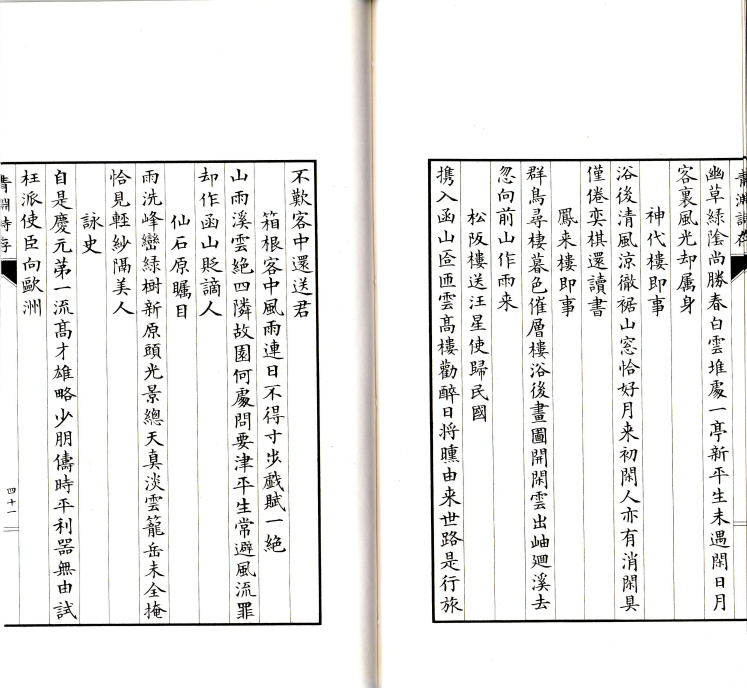 青淵詩存
幽草綠陰尚勝春白雲堆處一亭新平生未遇閑日月
客裏風光却属身
神代樓即事
浴後清風涼徹裾山窓恰好月来初閑人亦有消閑具
僅倦奕棋還讀書
鳳来樓即事
群鳥尋棲暮色催層樓浴後畫圖開閑雲出岫廻溪去
忽向前山作雨来
松阪樓送汪星使歸民國
携入函山匼匝雲髙樓勸醉日将曛由来世路是行旅
不歎客中還送君
箱根客中風雨連日不得寸步戯賦一絶
山雨溪雲絶四隣故園何處問要津平生常避風流罪
却作函山貶謫人
仙石原矚目
雨洗峰巒綠樹新原頭光景總天真淡雲籠岳未全掩
恰見輕紗隔美人
詠史
自是慶元第一流髙才雄略少朋儔時平利器無由試
枉派使臣向歐洲
青淵詩存
四十一